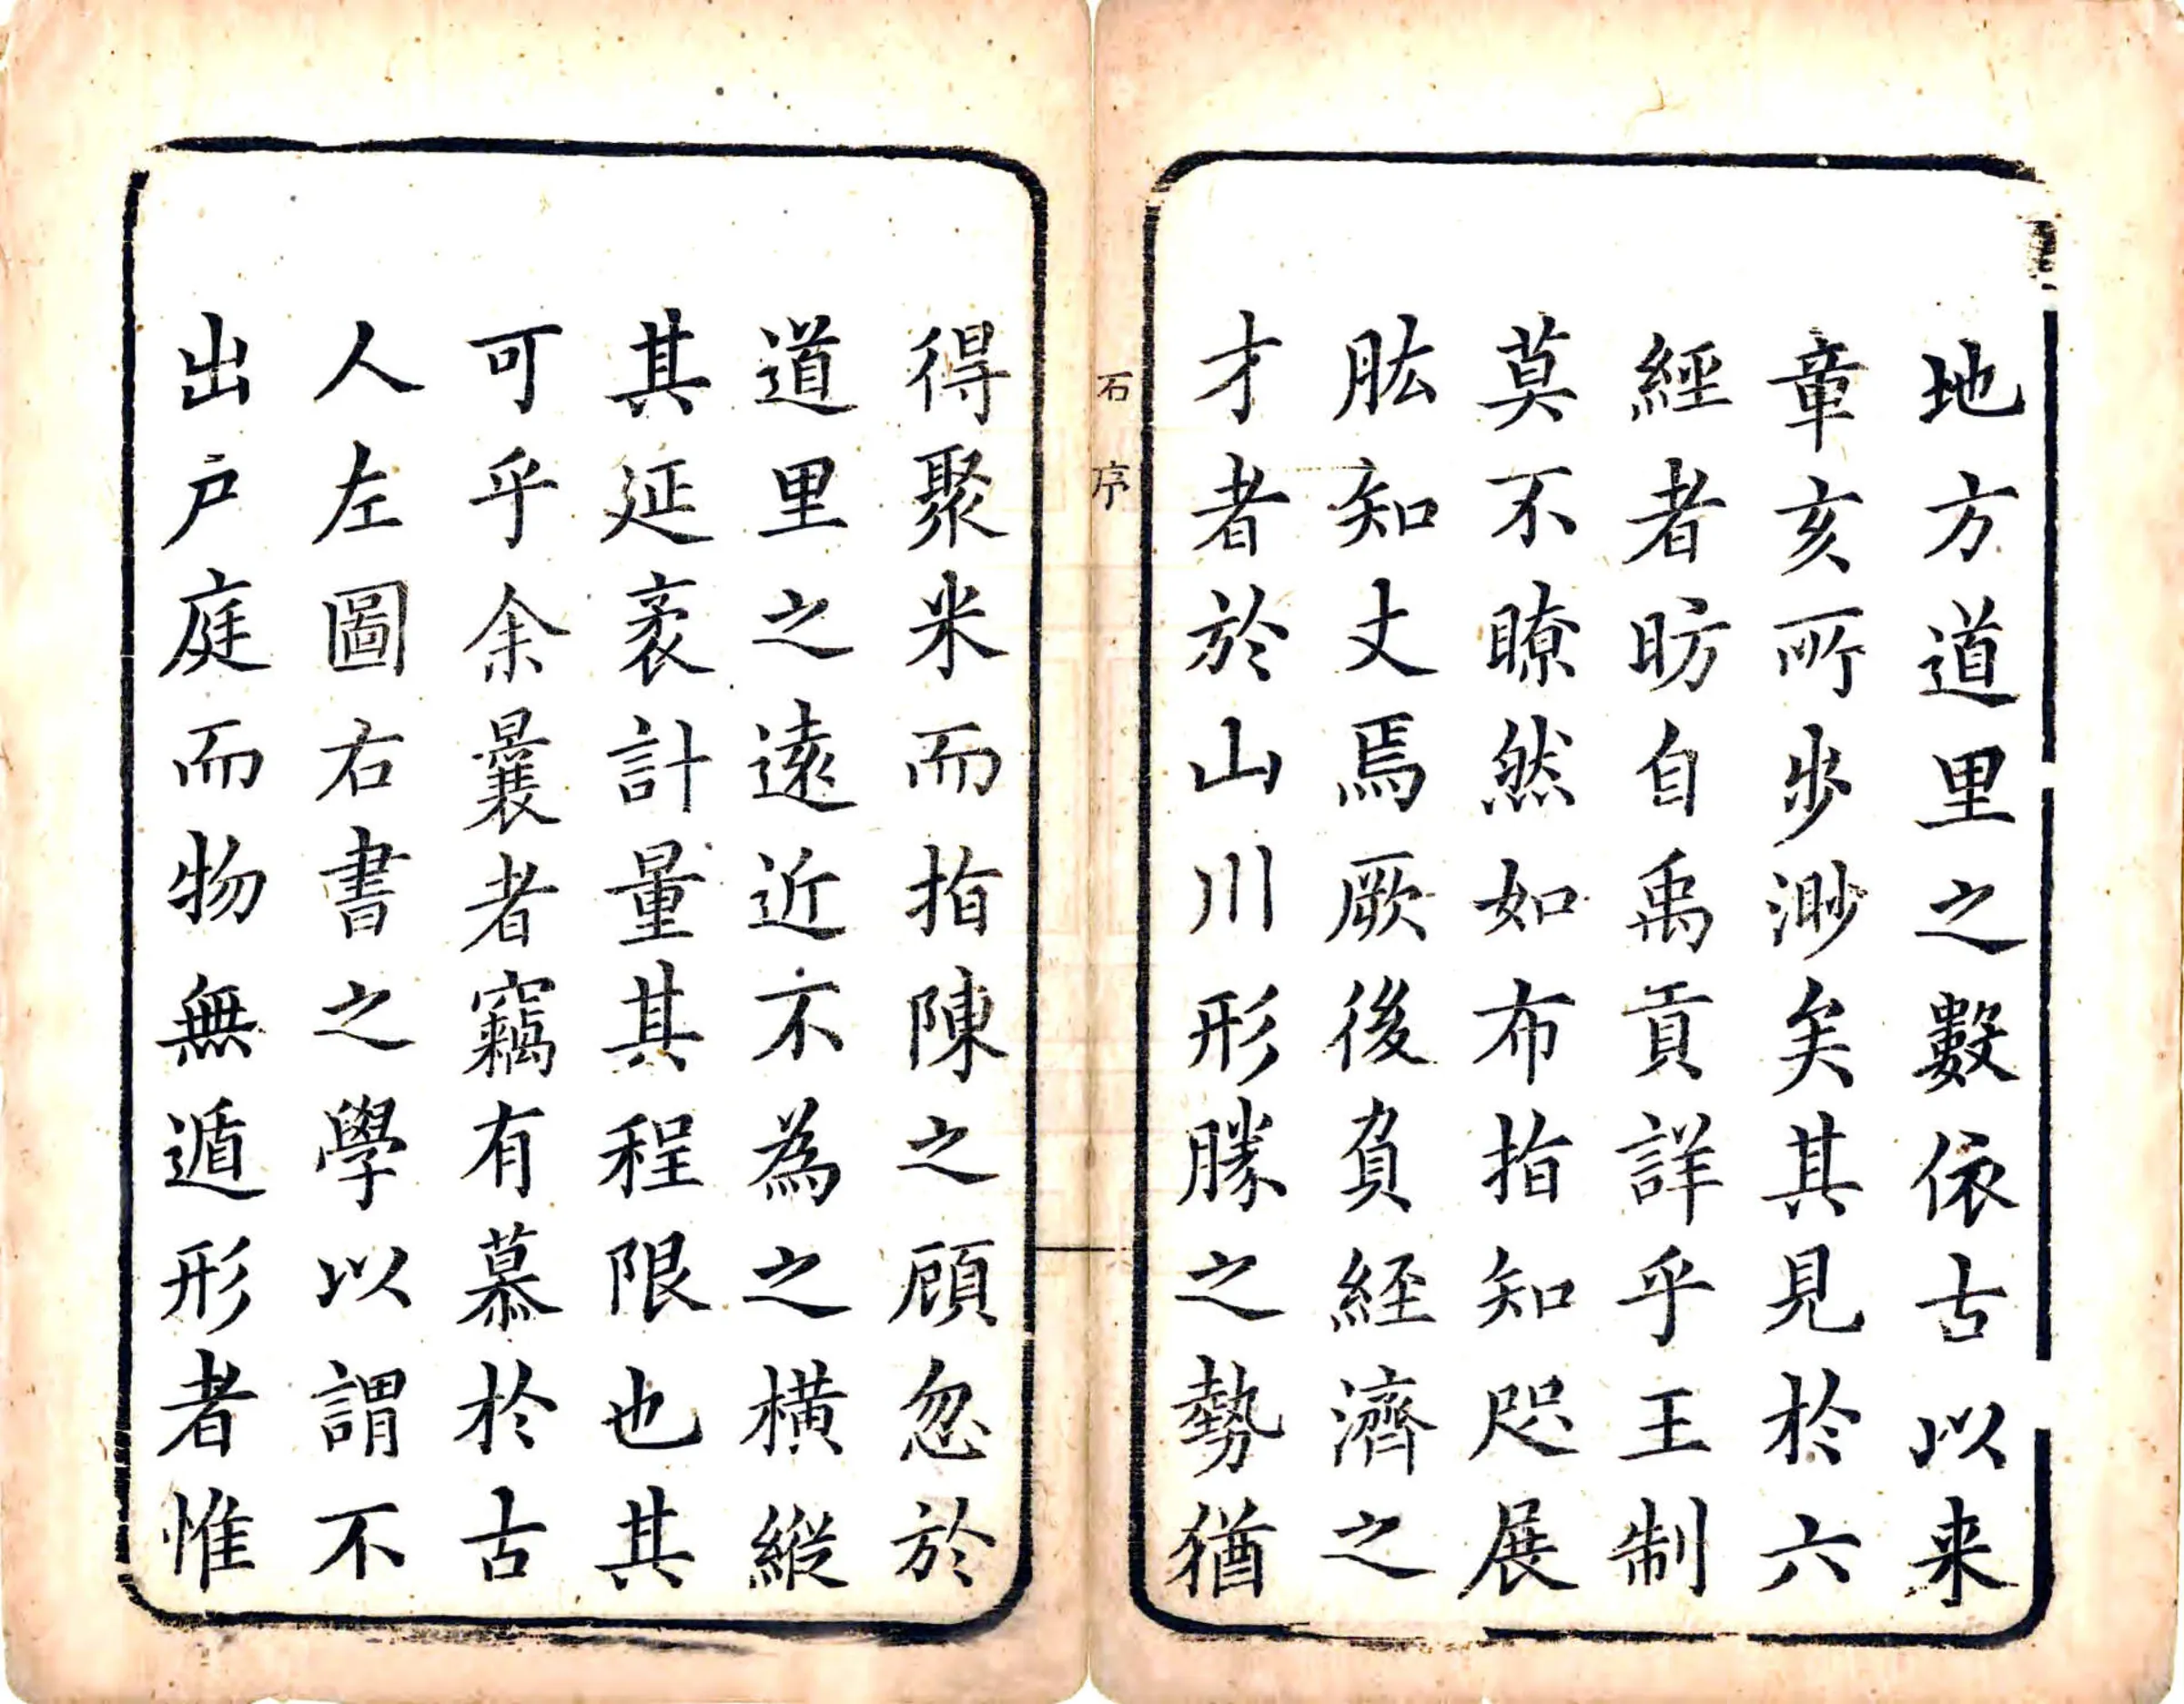 地方道里之數依古以来
章亥所步渺矣其見於六
經者昉自禹貢詳乎王制
莫不瞭然如布指知咫展
肱知丈焉厥後負經濟之
才者於山川形勝之勢猶
石序
得聚米而指陳之顧忽於
道里之遠近不為之橫縱
其延袤計量其程限也其
可乎余曩者竊有慕於古
人左圖右書之學以謂不
出户庭而物無遁形者惟